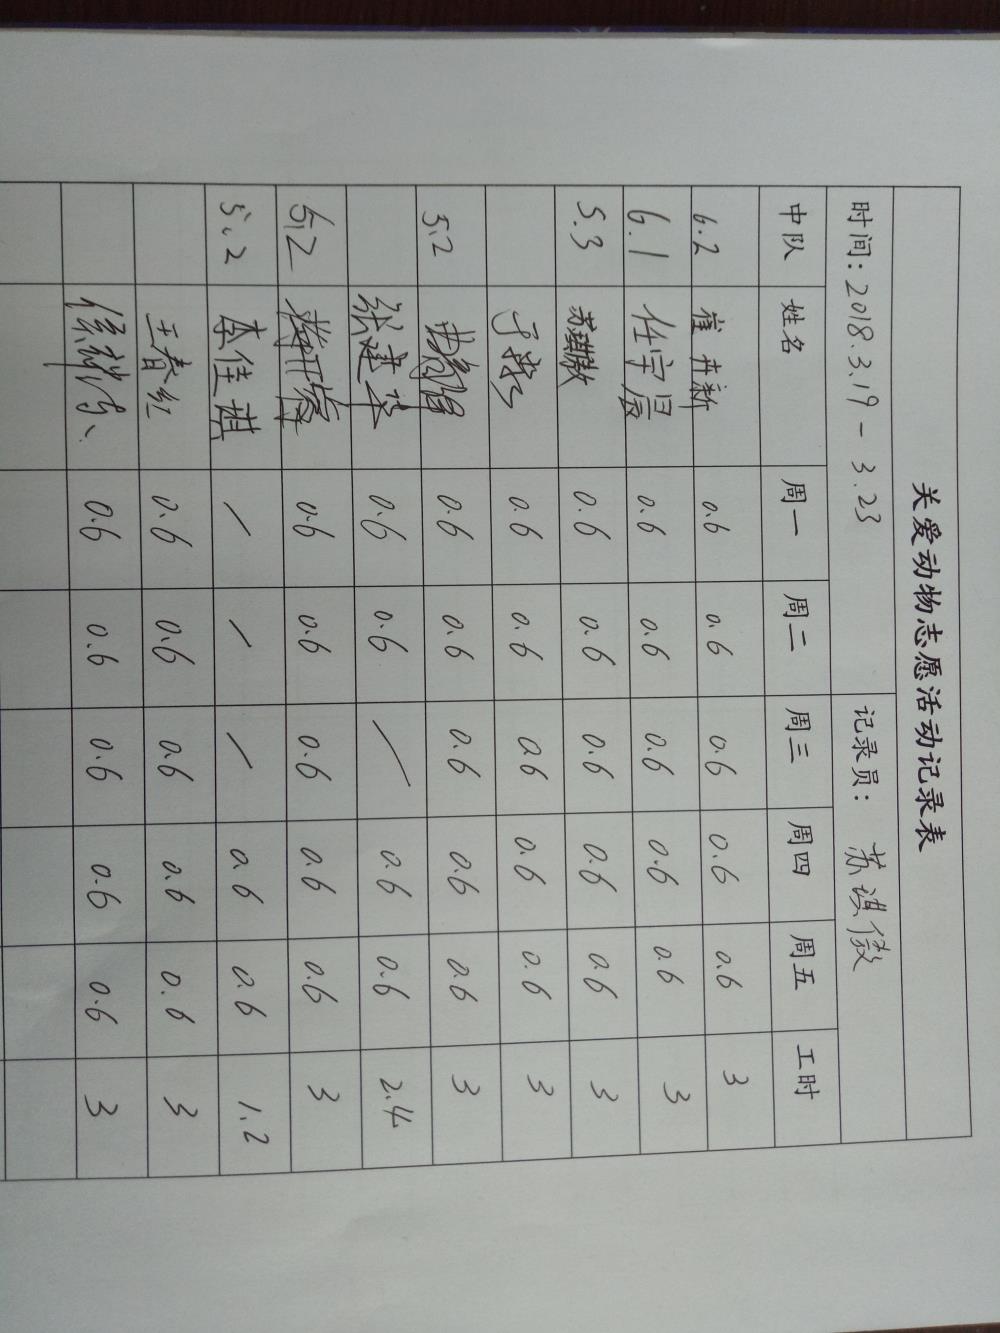 关爱动物志愿活动记录表
时间：2018.3.19－3.23 记录员：苏琪傲
中队 姓名 周一 周二 周三 周四 周五 工时
6.2 崔冉新 0.6 0.6 0.6 0.6 0.6 3
6.1 任宇辰 0.6 0.6 0.6 0.6 0.6 3
5.3 苏琪傲 0.6 0.6 0.6 0.6 0.6 3
0.6 0.6 0.6 0.6 0.6 3
5.2 0.6 0.6 0.6 0.6 0.6 3
张建华 0.6 0.6 / 0.6 0.6 2.4
5.2 0.6 0.6 0.6 0.6 0.6 3
5.2 李佳琪 / / / 0.6 0.6 1.2
王春红 0.6 0.6 0.6 0.6 0.6 3
0.6 0.6 0.6 0.6 0.6 3